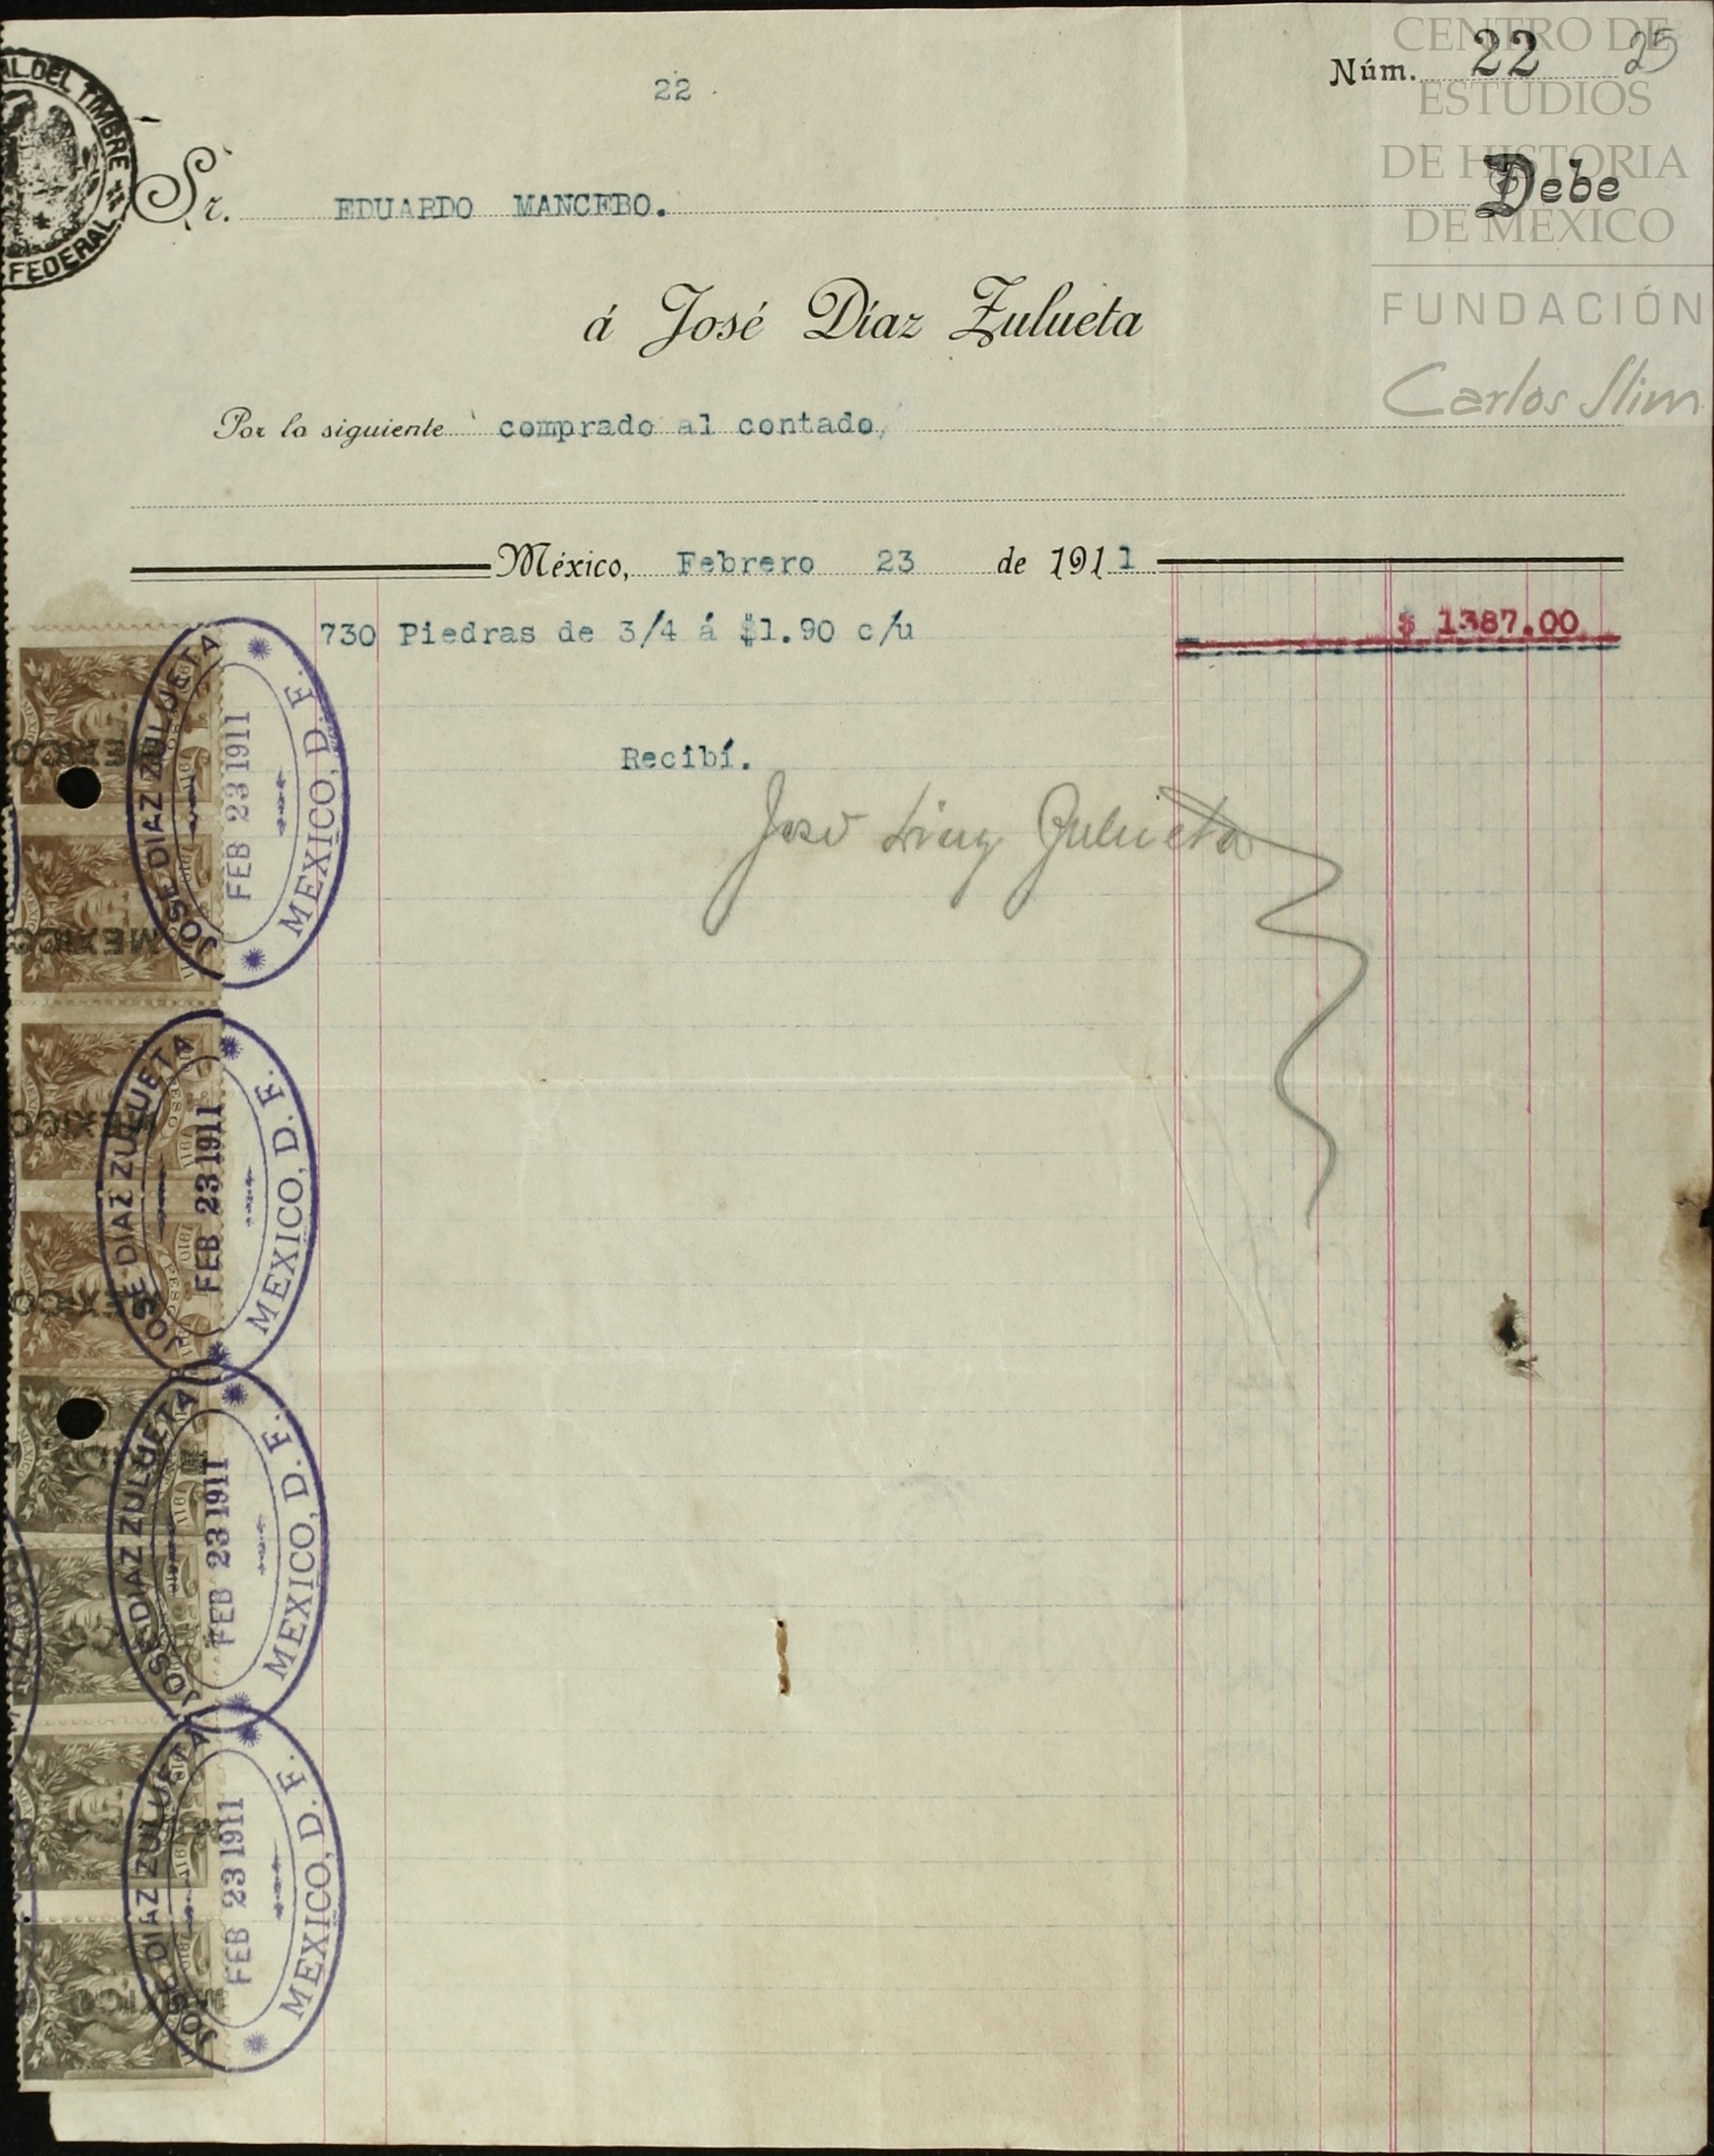 CENTRO DE
ESTUDIOS
DE HISTORIA
DE MÉXICO
FUNDACIÓN
Carlos Slim
Núm. 22 25
22
AL DEL TIMBRE
FEDERAL
Sr. EDUARDO MANCEBO. Debe
á José Díaz Zulueta
Por lo siguiente comprado al contado,
México, Febrero 23 de 1911
730 Piedras de 3/4 á $1.90 c/u $ 1387.00
Recibí.
José Diaz Zulueta
JOSE DIAZ ZULUETA
FEB 23 1911
MEXICO, D. F.
JOSE DIAZ ZULUETA
FEB 23 1911
MEXICO, D. F.
JOSE DIAZ ZULUETA
FEB 23 1911
MEXICO, D. F.
JOSE DIAZ ZULUETA
FEB 23 1911
MEXICO, D. F.
MEXICO